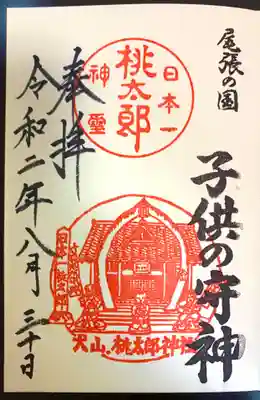 尾張の国
子供の守神
日本一
桃太郎
神璽
犬山・桃太郎神社
奉拝
令和二年八月三十日